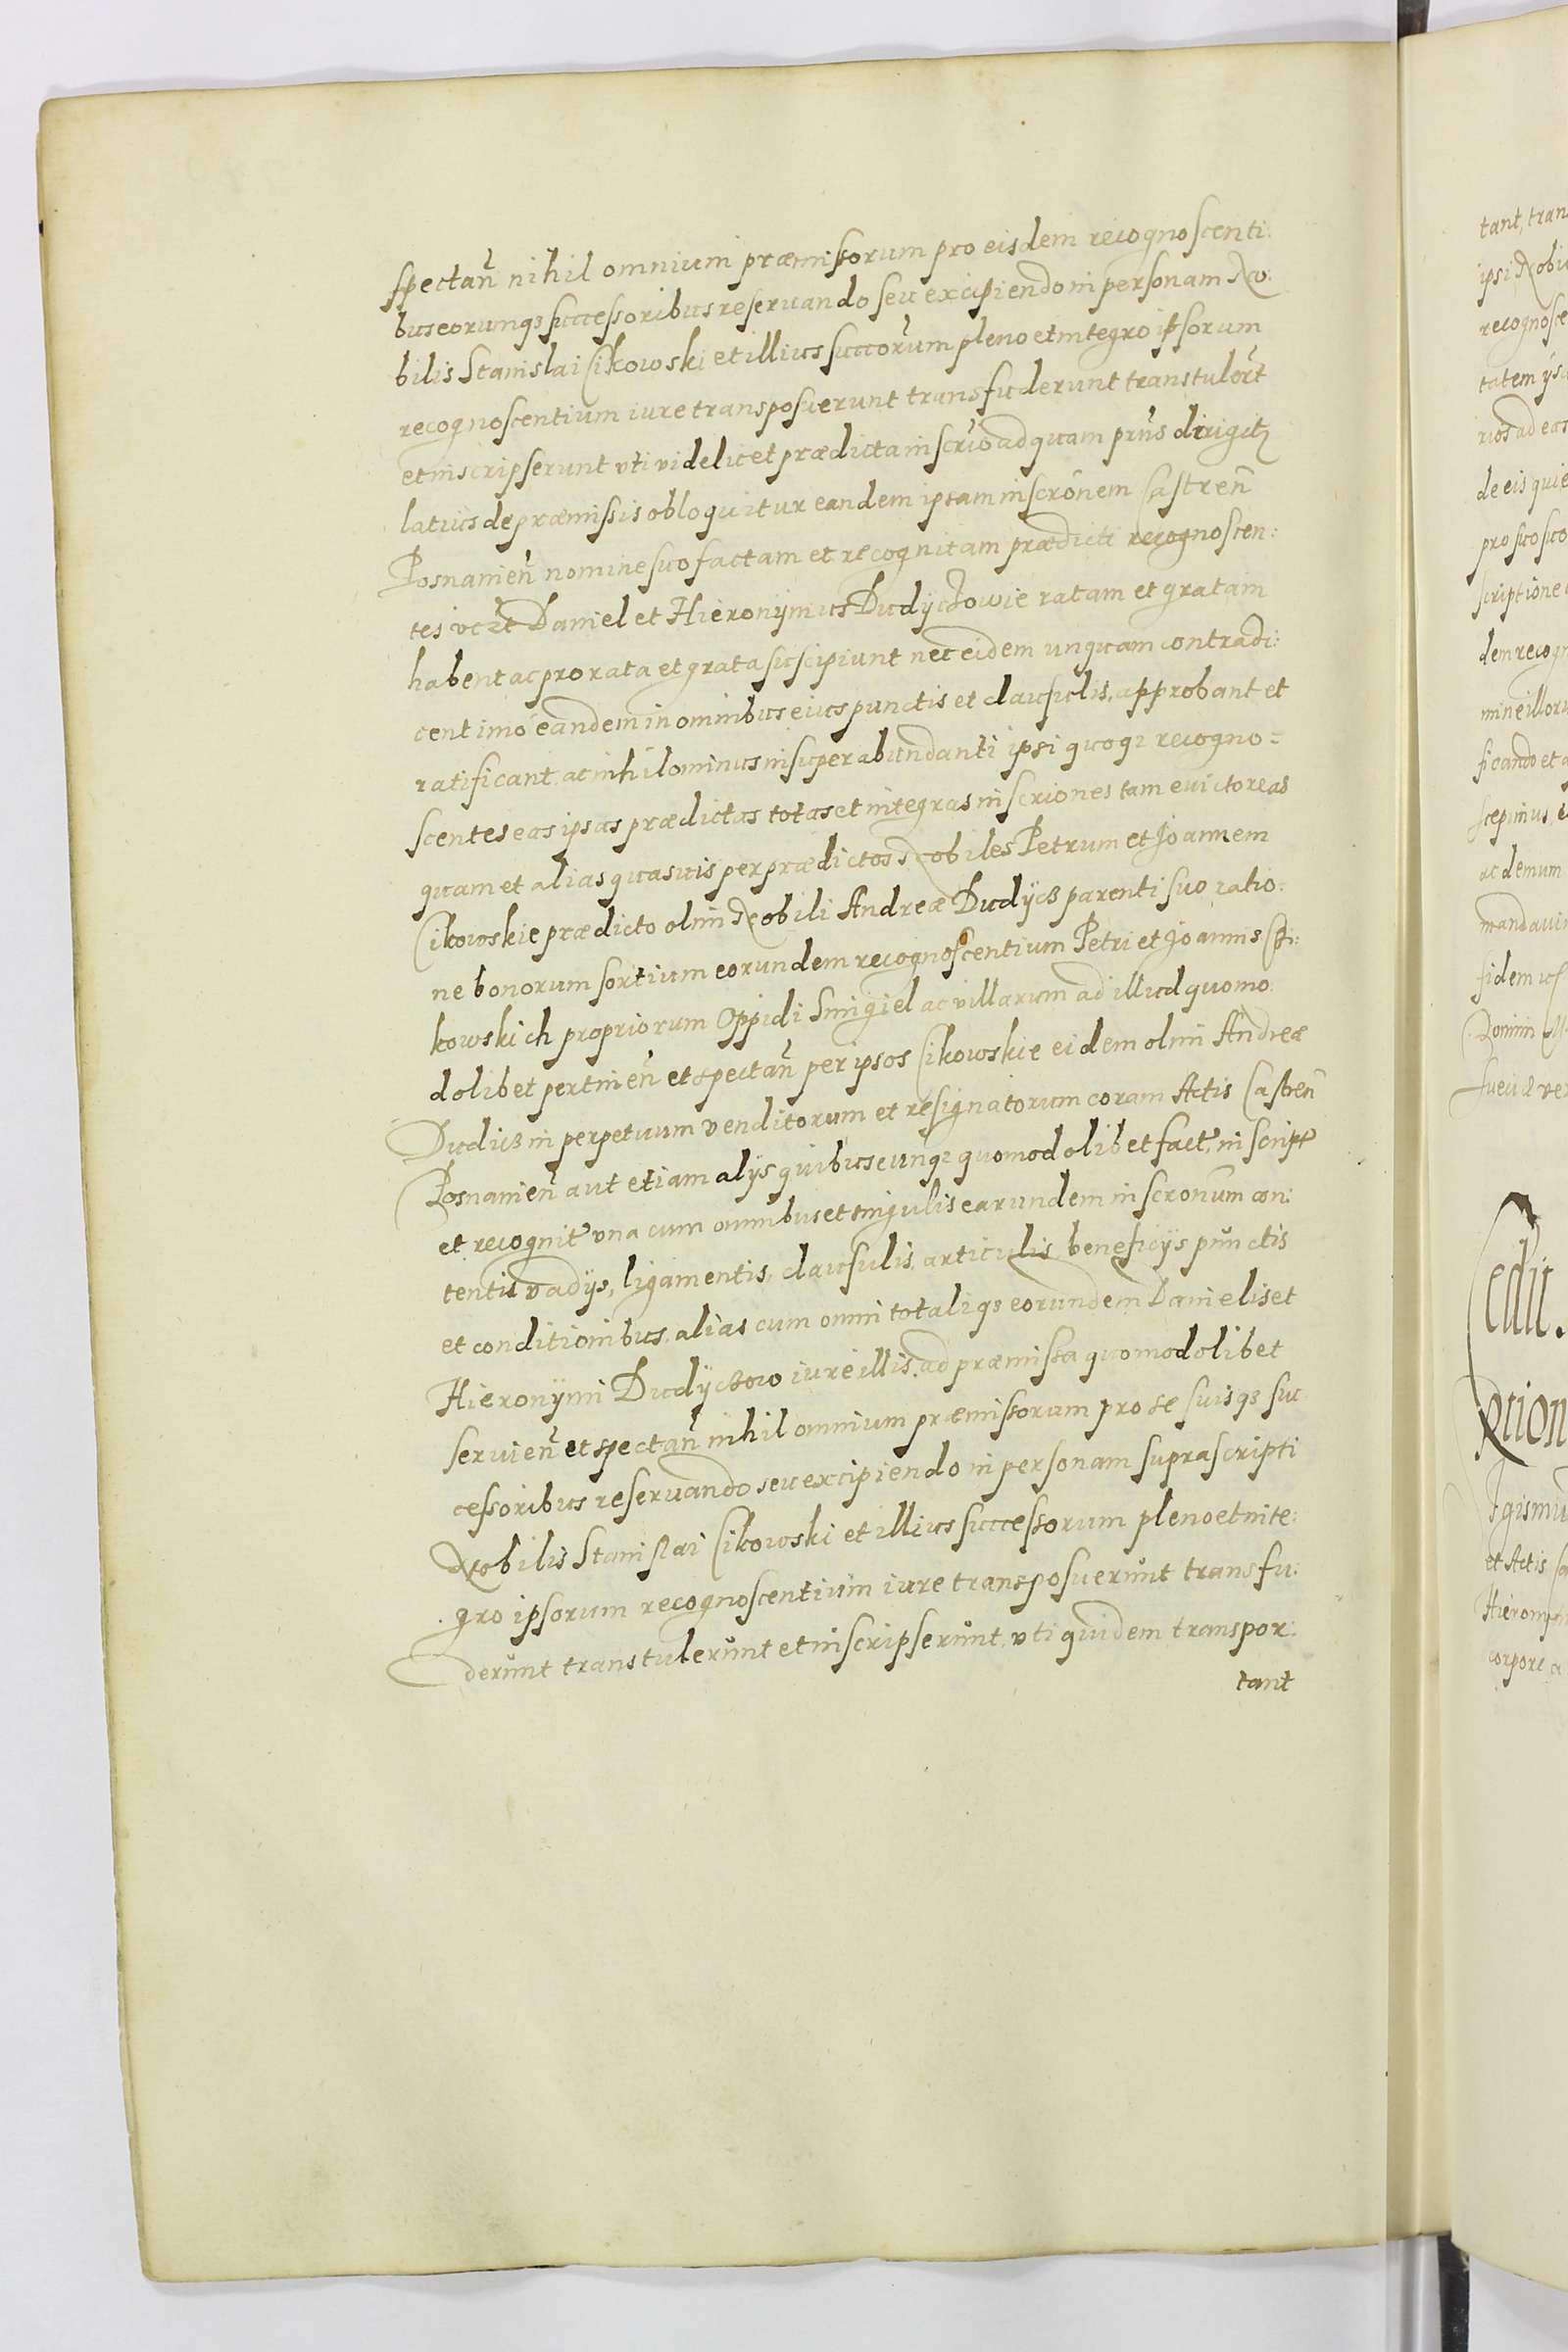 spectan̄ nihil omnium præmissorum pro eisdem recognoscenti:
bus eorumq3 successoribus reservando seu excipiendo in personam No:
bilis Stanislai Cikowski et illius succorum pleno et integro ipsorum
recognoscentium iure transposuerunt transfuderunt transtulert
et inscripserunt vti videlicet prædicta inscrio ad quam prius dirigitz
latius de præmissis obloquitur eandem iptam inscrōnem Castren̄
Posnanien̄ nomine suo factam et recognitam prædicti recognoscen:
tes Daniel et Hieronÿmus Dudÿczowie ratam et gratam
habent ac pro rata et grata suscipiunt nec eidem unquam contradi:
cent imò eandem in omnibus eius punctis et clausulis, approbant et
ratificant, ac nihilominus in superabundanti ipsi quoq3 recogno=
scentes eas ipsas prædictas totas et integras inscriones tam evictoreas
quam et alias quasuis per prædictos Nobiles Petrum et Joannem
Cikowskie prædicto olim Nobili Andreæ Dudÿcz parenti suo ratio:
ne bonorum sortium eorundem recognoscentium Petri et Joannis Czi:
kowskich propriorum Oppidi Smigiel ac villarum ad illud quomo
dolibet pertinen̄ et spectan̄ per ipsos Cikowskie eidem olim Andreæ
Dudicz in perpetuum venditorum et resignatorum coram Actis Castren̄
Posnanien̄ aut etiam alÿs quibuscunq3 quomodolibet fact, in script
et recognit vna cum omnibus et singulis earundem inscronum con:
tentis vadÿs, ligamentis, clausulis, articulis beneficÿs punctis
et conditionibus, alias cum omni totaliq3 eorundem Danielis et
Hieronÿmi Dudÿczow iure illis, ad præmissa quomodolibet
servien̄ et spectan̄ nihil omnium præmissorum pro se suisq3 suc
cessoribus reservando seu excipiendo in personam suprascripti
Nobilis Stanislai Cikowski et illius successorum pleno et inte:
gro ipsorum recognoscentium iure transposuerunt transfu:
derunt transtulerunt et inscripserunt, vti quidem transpor:
tant
tant, tran
ipsi Nobi
recognosce
tatem ÿs
rios ad eas
de eis quie
pro suo suc
scriptione
dem recogn
mine illoru
ficando et a
scepimus, e
ac demum
mandavi
fidem
Domin
Sueciæ ve
Cedit.
ption
Igismu
et Actis
Hieronÿ
corpore a